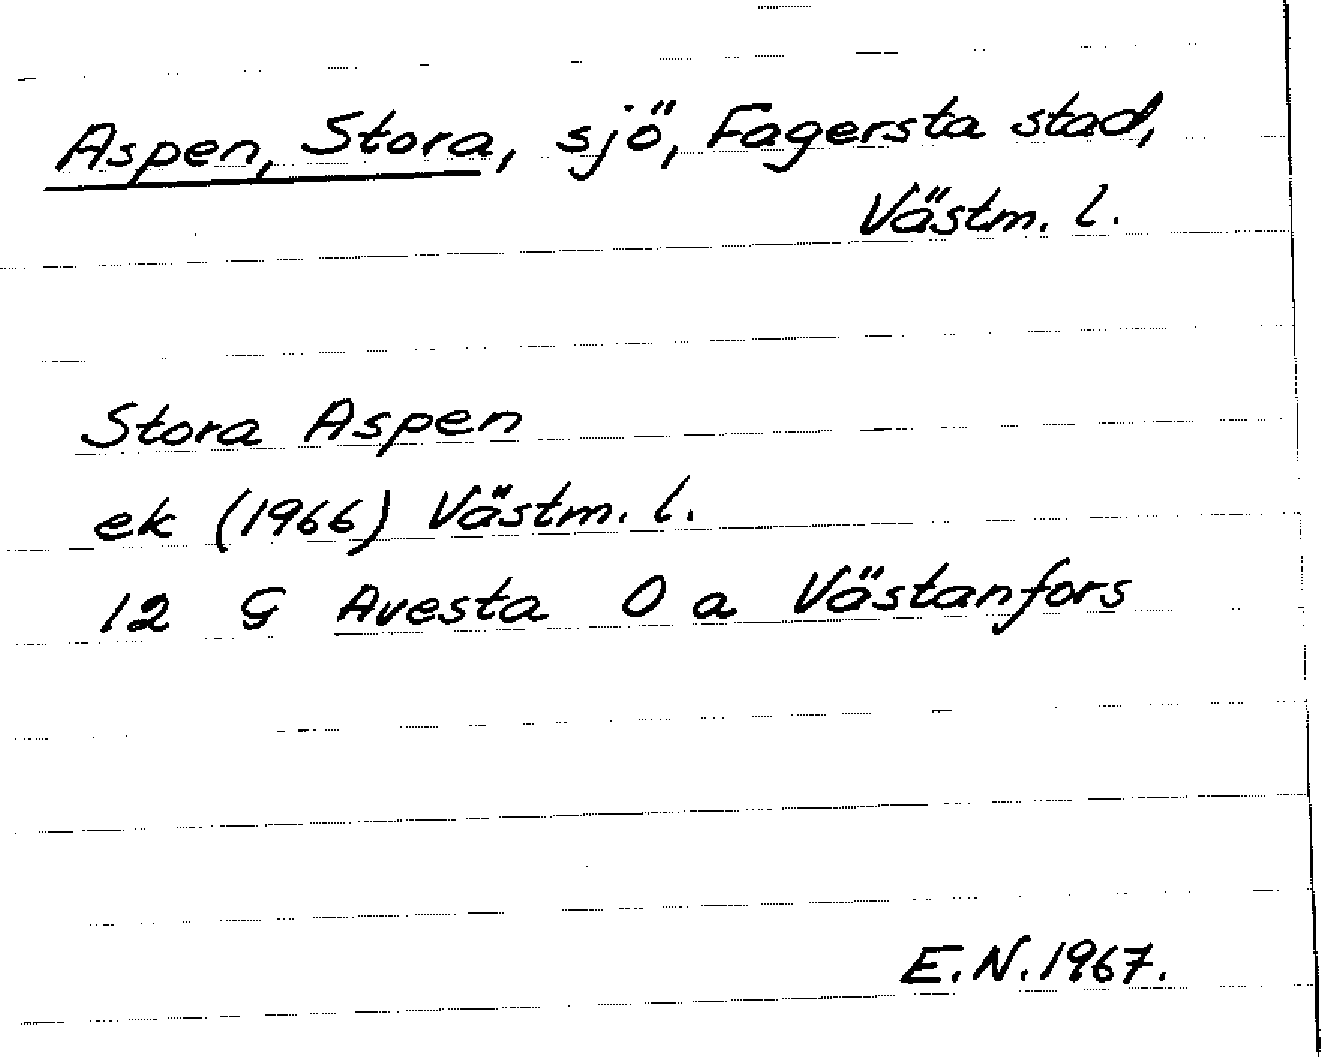 Aspen, Stora, sjö, Fagersta stad,
Västm. l.
Stora Aspen
ek (1966) Västm. l.
12 G Avesta 0 a Västanfors
E.N. 1967.